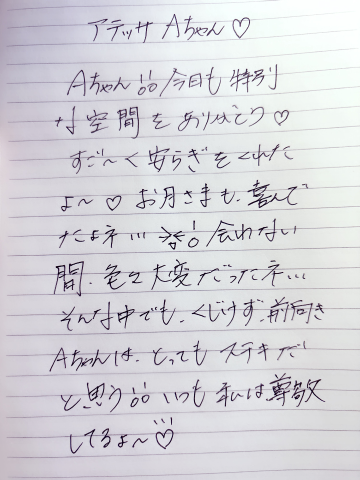 アテッサ Aちゃん♡
Aちゃん!!今日も特別
な空間をありがとう♡
すご〜く安らぎをくれた
よ〜♡ お月さまも、喜んで
たよネ… 会わない
間、色々大変だったネ…
そんな中でも、くじけず、前向き
Aちゃんは、とってもステキだ
と思う!! いつも私は尊敬
してるよ〜♡